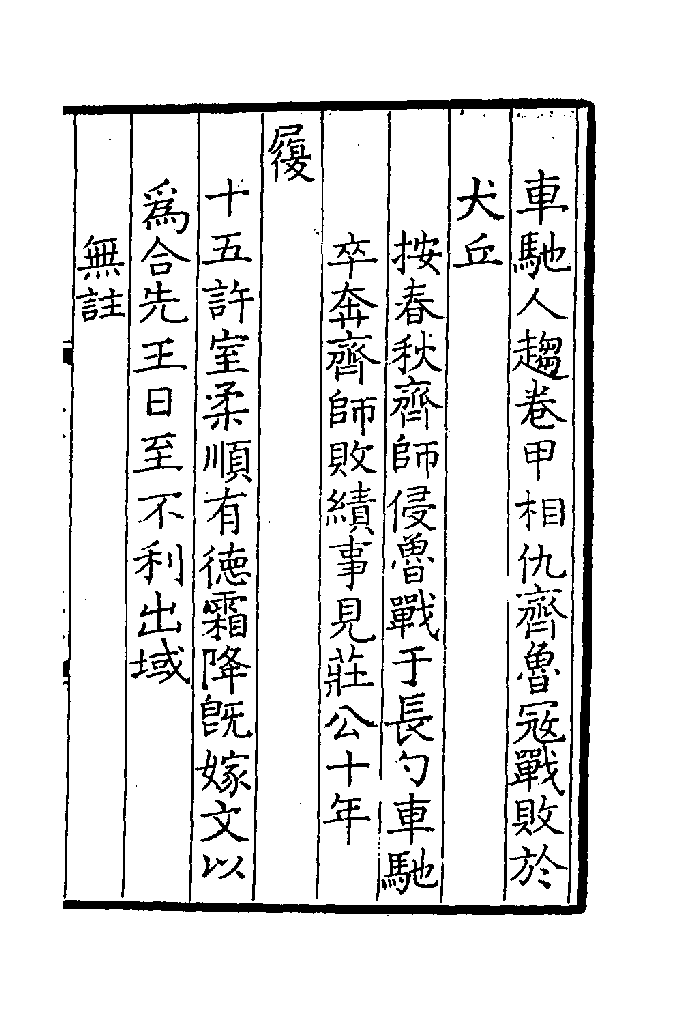 車馳人趨卷甲相仇齊魯寇戰敗於
犬丘
按春秋齊師侵魯戰于長勺車馳
卒奔齊師敗績事見莊公十年
履
十五許室柔順有德霜降既嫁文以
為合先王日至不利出域
無註